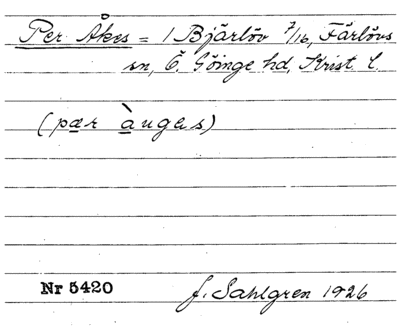 Per Åkes = 1 Bjärlöv 7/16, Färlövs
sn, Ö. Göinge hd, Krist. l.
(pær àugəs)
Nr 5420
J. Sahlgren 1926